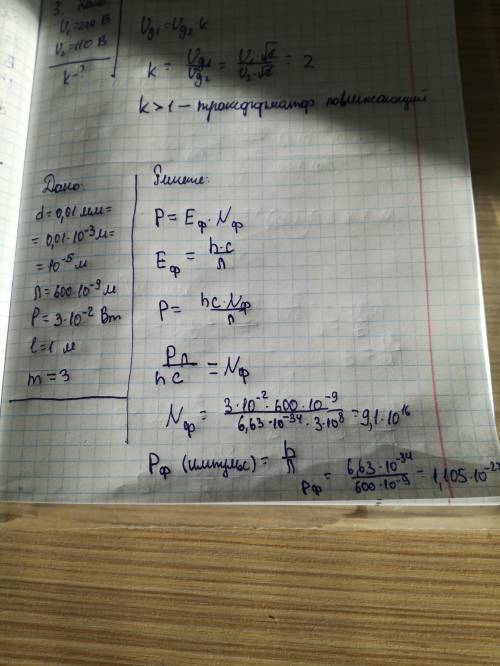 3. Дано:
V₁=220 В
V₂=110 В
k-?
Vg₁=Vg₂·k
k = Vg₁/Vg₂ = V₁√2/V₂·√2 = 2
k>1 — трансформатор повышающий
Дано:
d=0,01 мм=
=0,01·10⁻³м=
=10⁻⁵м
Л=600·10⁻⁹м
P=3·10⁻² Вт
l=1 м
m=3
Решение:
P=Eф·Nф
Eф = h·c/Л
P= hc·Nф/Л
PЛ/hc = Nф
Nф = 3·10⁻²·600·10⁻⁹/6,63·10⁻³⁴·3·10⁸ = 9,1·10¹⁶
Pф (импульс) = h/Л
Pф = 6,63·10⁻³⁴/600·10⁻⁹ = 1,105·10⁻²